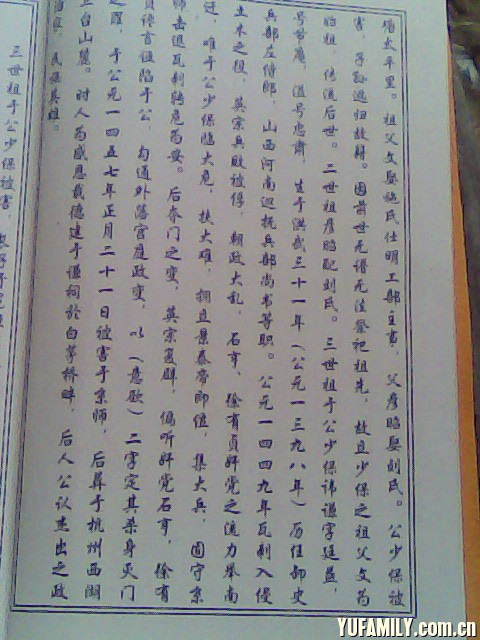 僭太平里。祖父文娶施氏仕明工部主事，父彦昭娶刘氏。公少保被
害，子孙逃归故籍。因前世无谱无法祭祀祖先，故且少保之祖父文为
始祖，传流后世。二世祖彦昭配刘氏。三世祖于公少保讳谦字廷益，
号节庵，谥号忠肃，生于洪武三十一年（公元一三九八年）历任御史
兵部左侍郎，山西河南巡抚兵部尚书等职。公元一四四九年瓦剌入侵
土木之役，英宗兵败被俘，朝政大乱，石亨，徐有贞奸党之流力举南
迁，唯于公少保临大危，扶大难，拥且景泰帝即位，集大兵，固守京
师击退瓦剌转危为安。后夺门之变，英宗复辟，偏听奸党石亨，徐有
贞谗言诬陷于公，勾通外藩宫庭政变，以（意欲）二字定其杀身灭门
之罪，于公元一四五七年正月二十一日被害于京师，后葬于杭州西湖
三台山麓。时人为感恩载德建于谦祠於白茅桥畔，后人公认杰出之政
治家，民族英雄。
三世祖于公少保被害，
YUFAMILY.com.cn